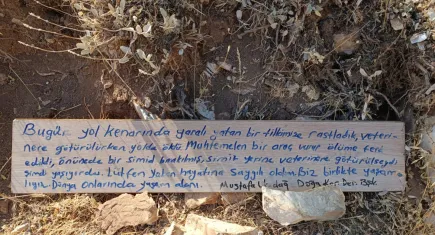 Bugün yol kenarında yaralı yatan bir tilkimize rastladık, veteri-
nere götürülürken yolda öldü Muhtemelen bir araç vurup ölüme terk
edildi, önünede bir simid bırakılmış, simit yerine veterinere götürülseydi
şimdi yaşıyordu. Lütfen yaban hayatına Saygılı olalım Biz birlikte
Dünya onlarında yaşam alanı. Mustafa Doğa Kor. Der. Bşk.